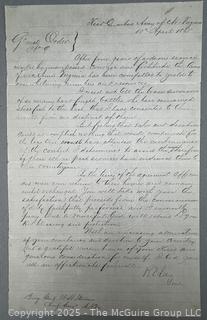 Head Quarters Army of N. Virginia
10th April 1865
General Order
No 9
After four years of arduous service
marked by unsurpassed courage and fortitude the Army
of Northern Virginia has been compelled to yield to
overwhelming numbers and resources
I need not tell the brave survivors
of so many hard fought battles who have remained
steadfast to the last that I have consented to
from no distrust of them
But feeling that valor and devotion
could accomplish nothing that would compensate for
the loss that would have attended the continuance
of the contest I determined to avoid the
of those whose past services have endeared them to
their countrymen
By the terms of the agreement Officers
and men can return to their homes and remain
until exchanged. You will take with you the
satisfaction that proceeds from the consciousness
of duty faithfully performed and I earnestly
pray that a merciful God will extend to you
His blessing and protection
With an increasing admiration
of your constancy and devotion to your Country
and a grateful remembrance of your kind and
generous consideration for myself I bid you
all an affectionate farewell
R E Lee
Genl
Copyright 2025 - CTG Publishing